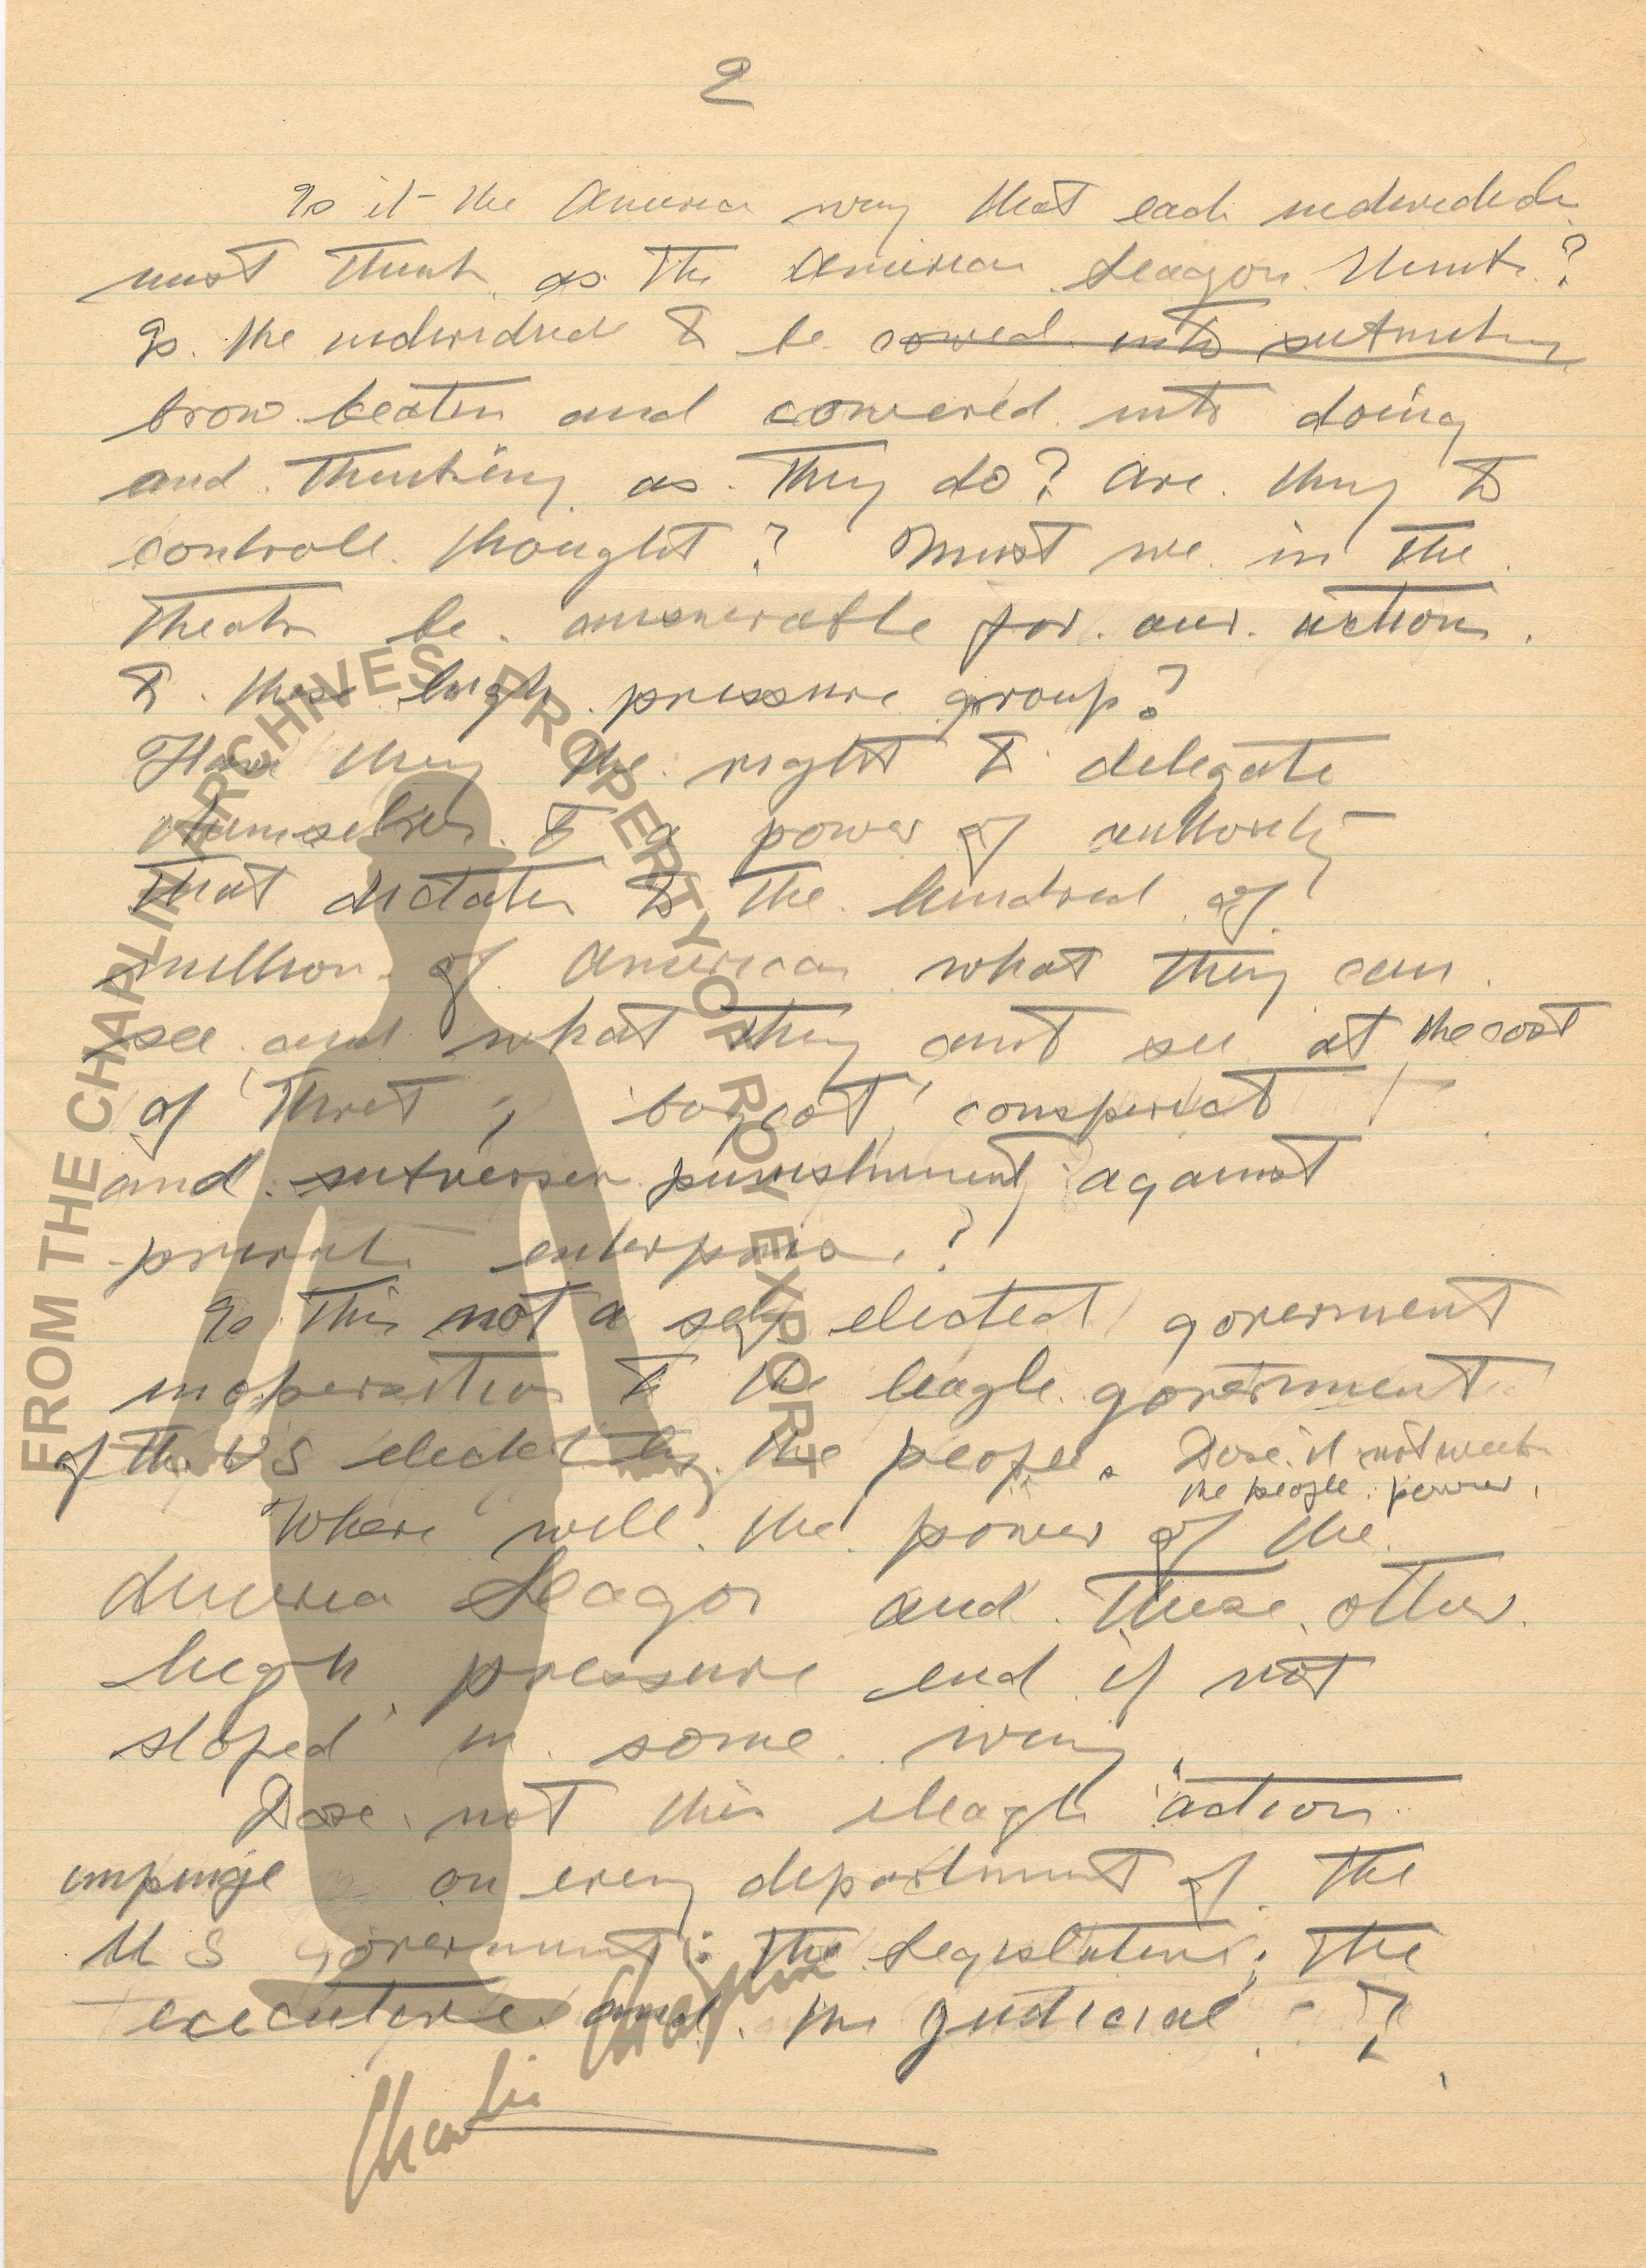 2
Is it the America way that each individule
must think as the American Leagon thinks?
Is the individule to be cowed into submiting
brow beaten and cowered into doing
and thinking as they do? Are they to
controll thought? Must we in the
theatre be answerable for our actions.
to these high pressure group?
Have they the right to delegate
themselves to a power of authority
that dictates to the hundred of
million of American what they can
see and what they cant see at the cost
of thret, boycot, conspiricet
and subversion punishment against
private enterprise?
Is this not a self elected goverment
inoperstion to the leagle goverment
of the US elected by the people. Dose it not
the people power,
Where will the power of the
America Leagon and these other
high pressure end if not
stoped in some way
Dose not this illeagle action
impinge on every department of the
US goverment: the Legislature; the
executive and the judicial ?
FROM THE CHAPLIN ARCHIVES PROPERTY OF ROY EXPORT
Charlie Chaplin